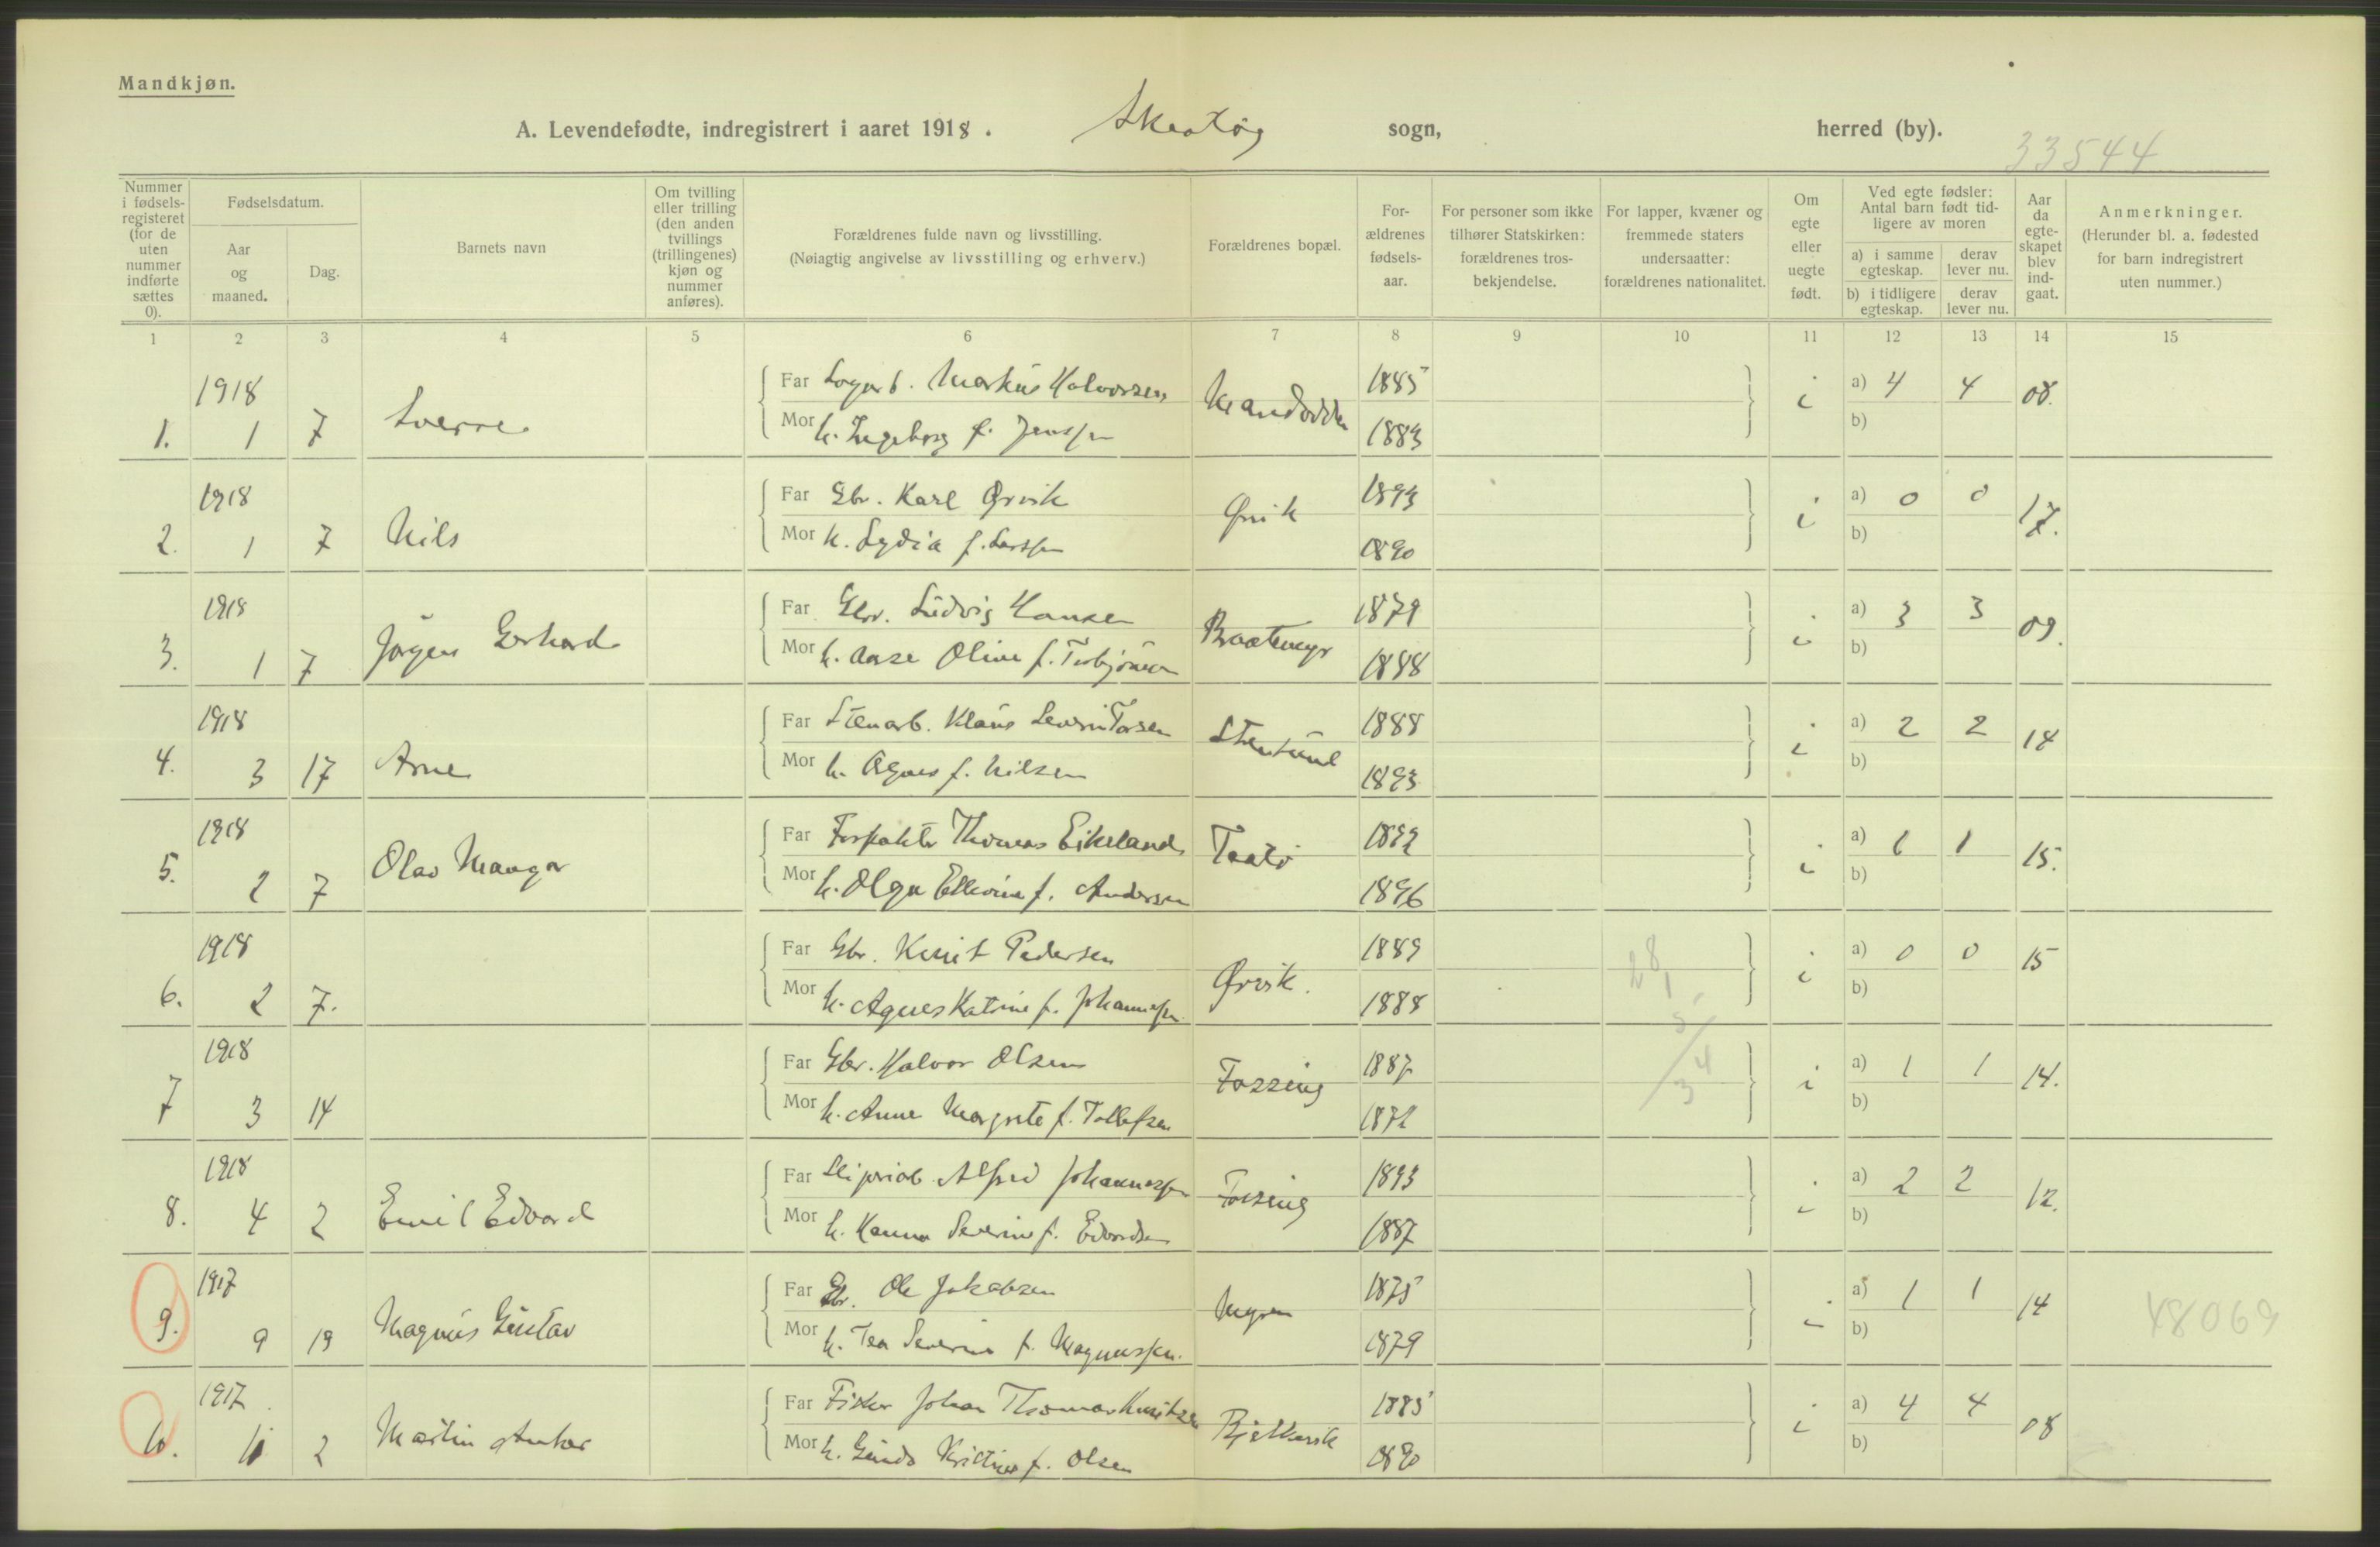 Mandkjøn.
A. Levendefødte, indregistrert i aaret 1918. Skaatøy sogn, herred (by).
33544
Nummer i fødsels-registeret (for de uten nummer indførte sættes 0).
Fødselsdatum.
Aar og maaned.
Dag.
Barnets navn
Om tvilling eller trilling (den anden tvillings (trillingenes) kjøn og nummer anføres).
Forældrenes fulde navn og livsstilling.
(Nøiagtig angivelse av livsstilling og erhverv.)
Forældrenes bopæl.
For-ældrenes fødsels-aar.
For personer som ikke tilhører Statskirken: forældrenes tros-bekjendelse.
For lapper, kvæner og fremmede staters undersaatter: forældrenes nationalitet.
Om egte eller uegte født.
Ved egte fødsler: Antal barn født tid-ligere av moren
a) i samme egteskap.
derav lever nu.
b) i tidligere egteskap.
derav lever nu.
Aar da egte-skapet blev ind-gaat.
Anmerkninger.
(Herunder bl. a. fødested for barn indregistrert uten nummer.)
1 2 3 4 5 6 7 8 9 10 11 12 13 14 15
1918 Far Markus Halvorsen 1885 a) 4 4 08.
1. 1 7 Sverre Mor h. Ingeborg f. Jenssen 1883 i b)
1918 Far Gbr. Karl Ørvik Ørvik 1893 a) 0 0 17.
2. 1 7 Nils Mor h. Lydia f. Larssen 1890 i b)
1918 Far Gbr. Ludvig Hansen Braatemyr 1879 a) 3 3 09.
3. 1 7 Jørgen Gerhard Mor h. Aase Oline f. 1888 i b)
1918 Far Stenarb. Klaus Severin Stensund 1888 a) 2 2 14
4. 3 17 Arne Mor h. Agnes f. Nilsen 1893 i b)
1918 Far Forpakter Thomas Eikeland Taatø a) 1 1 15.
5. 2 7 Olav Mor h. Olga f. Andersen 1896 i b)
1918 Far Gbr. Knut Pedersen Ørvik. 1889 28 a) 0 0 15
6. 2 7. Mor h. Agnes Katrine f. Johannessen 1888 i b)
1918 Far Gbr. Halvor Olsen Fossing 1887 a) 1 1 14.
7 3 14 Mor h. Anne Margrete f. Tollefsen i b)
1918 Far Alfred Johannessen Fossing 1893 a) 2 2 12.
8. 4 2 Emil Edvard Mor h. Hanna Severine f. Edvardsen 1887 i b)
1917 Far Gbr. Ole Jakobsen Myren 1875 a) 1 1 14 48069
9. 9 19 Magnus Gustav Mor h. Tea Severine f. Magnussen. 1879 i b)
1917 Far Fisker Johan Thomas Knutsen Bjelkevik 1885 a) 4 4 08
10. 11 2 Martin Anker Mor h. Kristine f. Olsen 1890 i b)